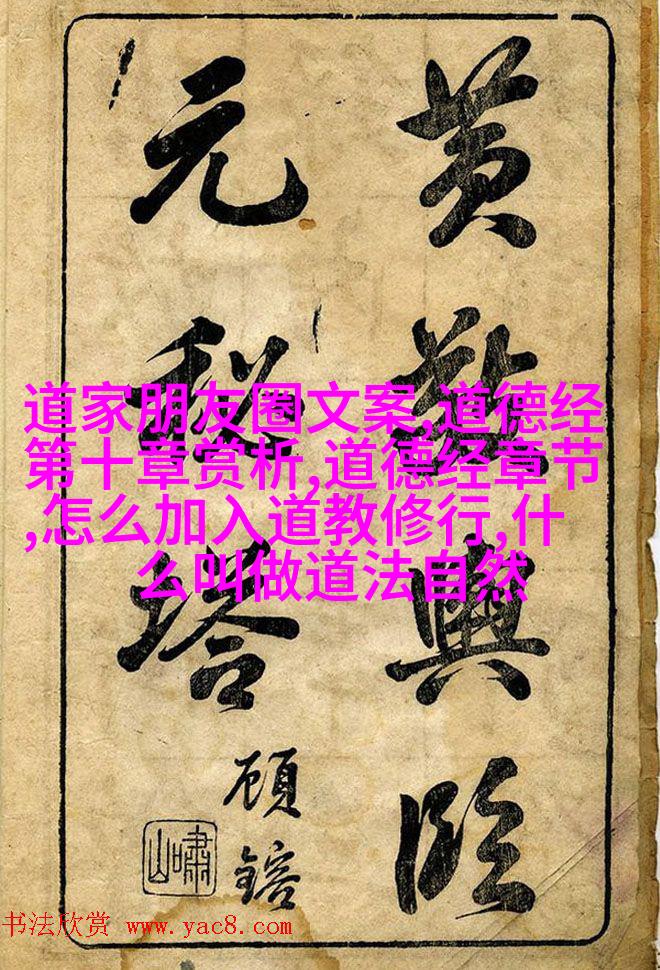 黄敬輿臨
元秘塔
顾鎔
嘯山
道家朋友圈文案,道德经
第十章赏析,道德经章节
,怎么加入道教修行,什
么叫做道法自然
书法欣赏 www.yac8.com